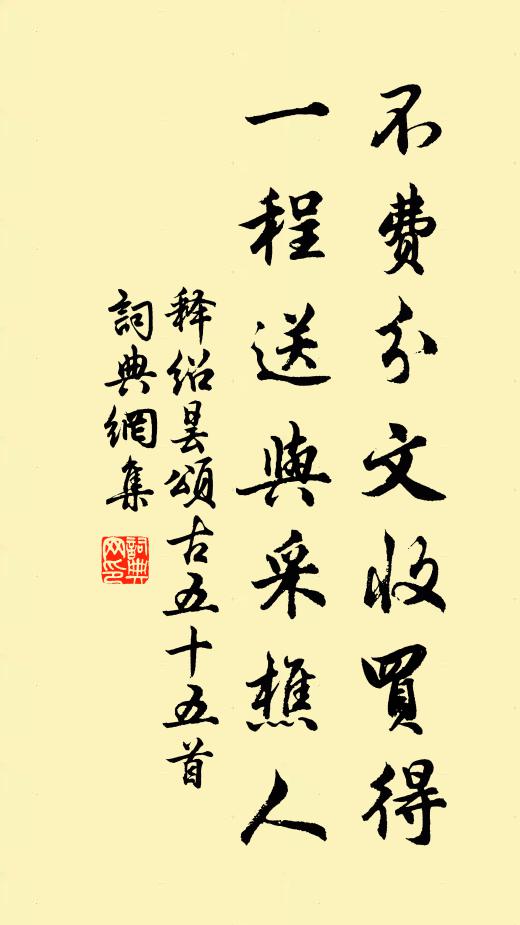 不費分文收買得
一程送與采樵人
释绍昙頌古五十五首
詞典網集
詞典网印